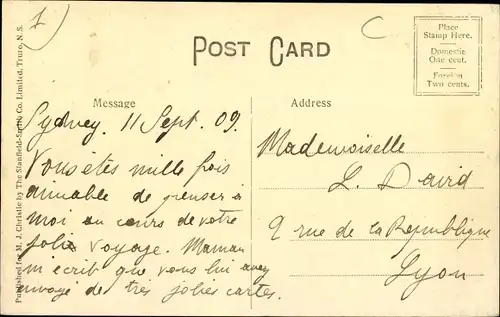 1)
C
POST CARD
Place
Stamp Here.
Domestic
One cent.
Foreign
Two cents.
Published for M. J. Christie by The Stanfield-Smith Co. Limited, Truro, N.S.
Message
Sydney. 11 Sept. 09.
Vous êtes mille fois
aimable de penser à
moi au cours de votre
jolie voyage. Maman
m'écrit que vous lui avez
envoyé de très jolies cartes.
Address
Mademoiselle
L. David
9 rue de la République
Lyon